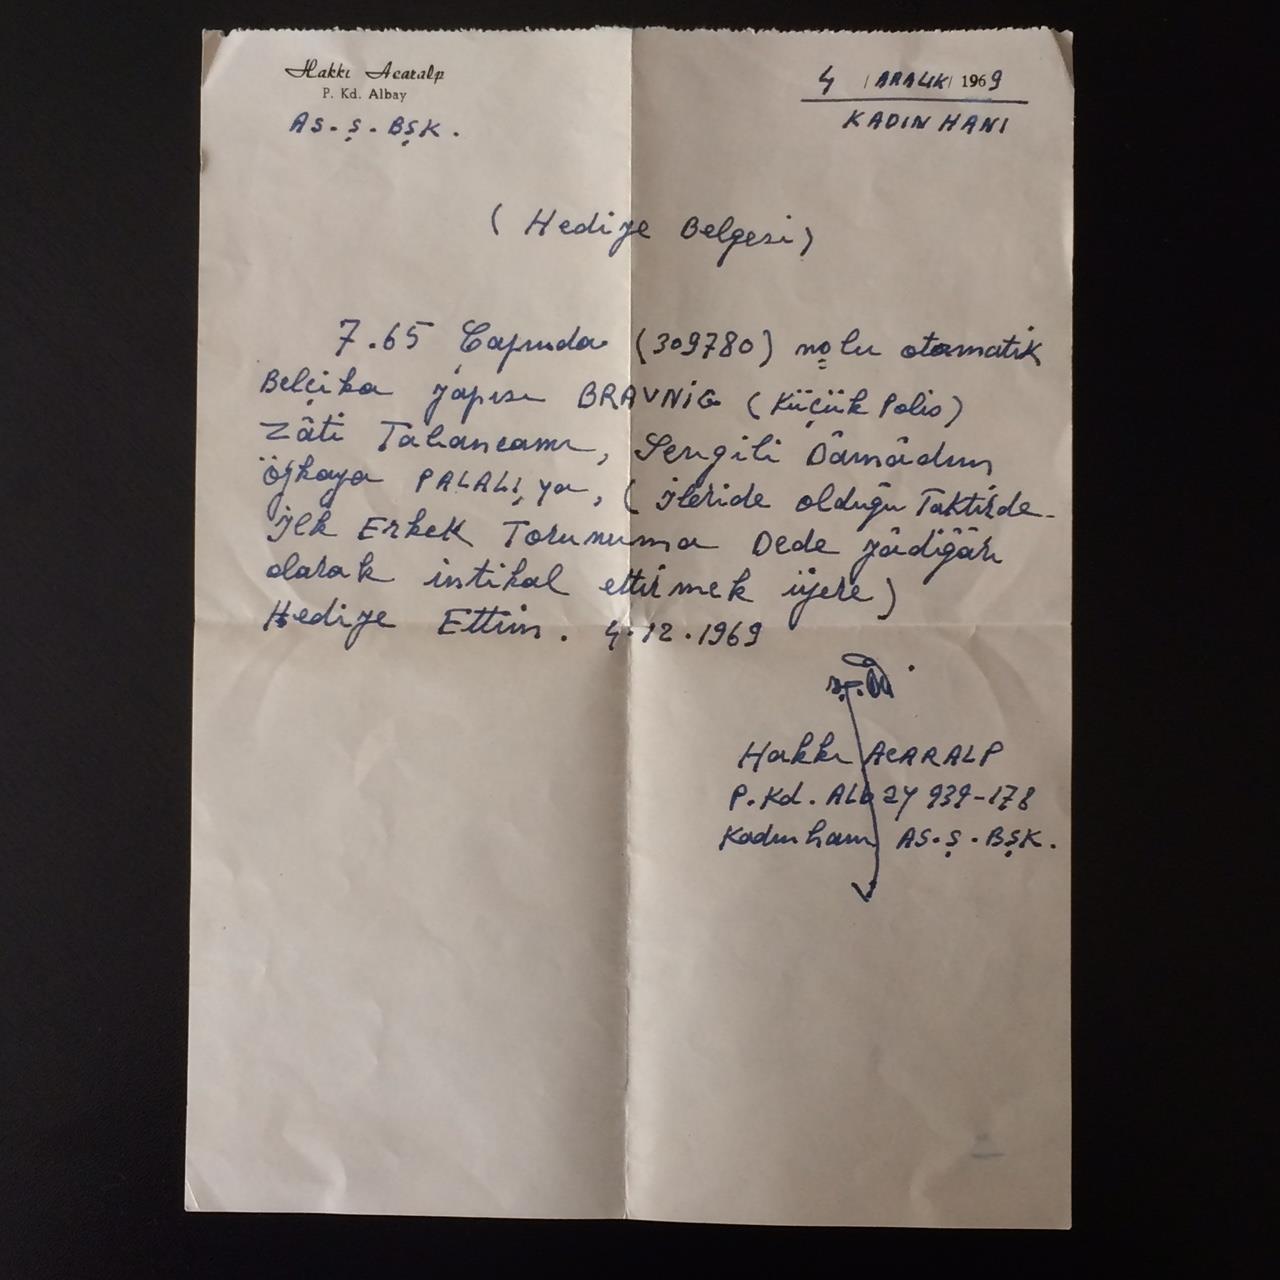 Hakkı Acaralp
P. Kd. Albay
AS. Ş. BŞK.
4 / ARALIK / 1969
KADIN HANI
( Hediye Belgesi )
7.65 Çapında (309780) nolu otomatik
Belçika yapısı BRAVNİG (Küçük Polis)
Zâti Tabancamı, Sevgili Dâmâdım
Özkaya PALALI, ya, ( İleride olduğu Taktirde-
İlk Erkek Torunuma Dede Yâdiğârı
olarak intikal ettirmek üzere )
Hediye Ettim. 4.12.1969
Hakkı ACARALP
P. Kd. ALBAY 939-178
Kadınhanı AS. Ş. BŞK.